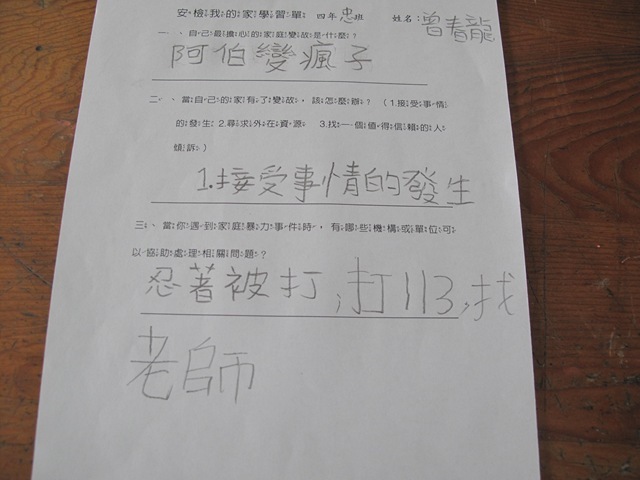 安檢我的家學習單 四年忠班 姓名：曾青龍
一、自己最擔心的家庭變故是什麼？
阿伯變瘋子
二、當自己的家有了變故，該怎麼辦？（1.接受事情
的發生 2.尋求外在資源 3.找一個值得信賴的人
傾訴）
1.接受事情的發生
三、當你遇到家庭暴力事件時，有哪些機構或單位可
以協助處理相關問題？
忍著被打，打113，找
老師